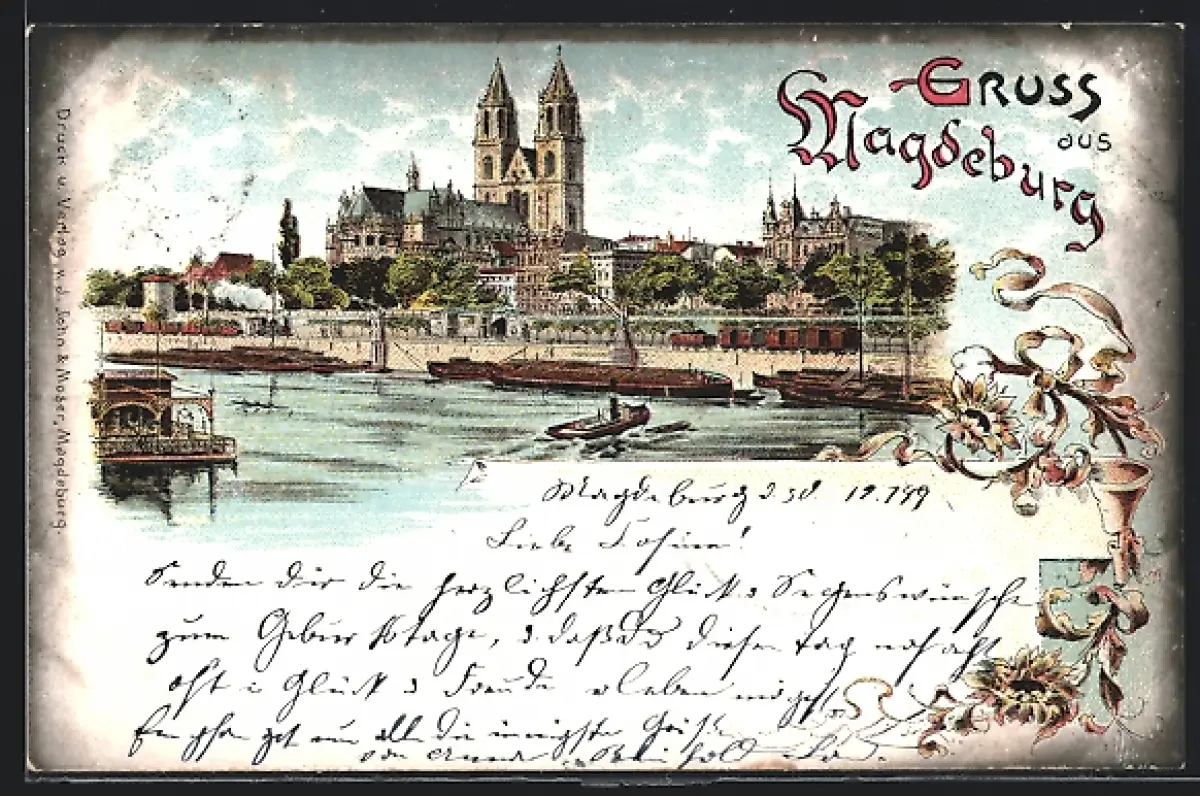 GRUSS
aus
Magdeburg
Druck u. Verlag v. d. John & Moser, Magdeburg.
Magdeburg d.
Liebe
Senden Dir die herzlichsten Glück u Segenswünsche
zum Geburtstage, u. daß Du diesen Tag noch
oft i Glück u Freude erleben mögest
Empfanget nun alle die innigsten Grüße
von